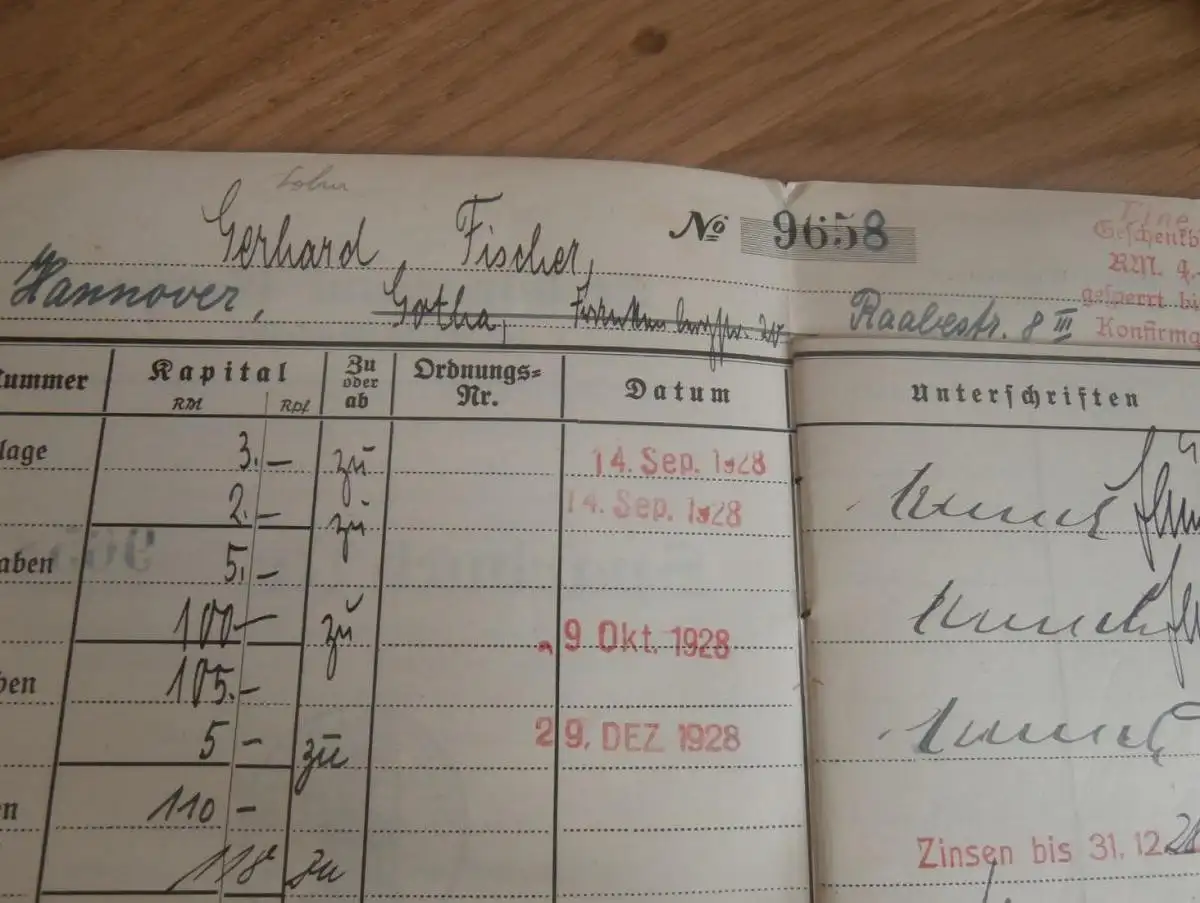 Gerhard, Fischer, No 9658
Hannover, Gotha, Raabestr. 8 III
Geschenkb
RM.
gesperrt bi
Konfirma
ummer Kapital Zu oder ab Ordnungs= Nr. Datum Unterschriften
RM Rpf
lage 3.— zu 14. Sep. 1928
2.— zu 14. Sep. 1928
aben 5.—
100— zu 9 Okt. 1928
ben 105.—
5 — zu 29. DEZ 1928
en 110 —
zu Zinsen bis 31.12.28